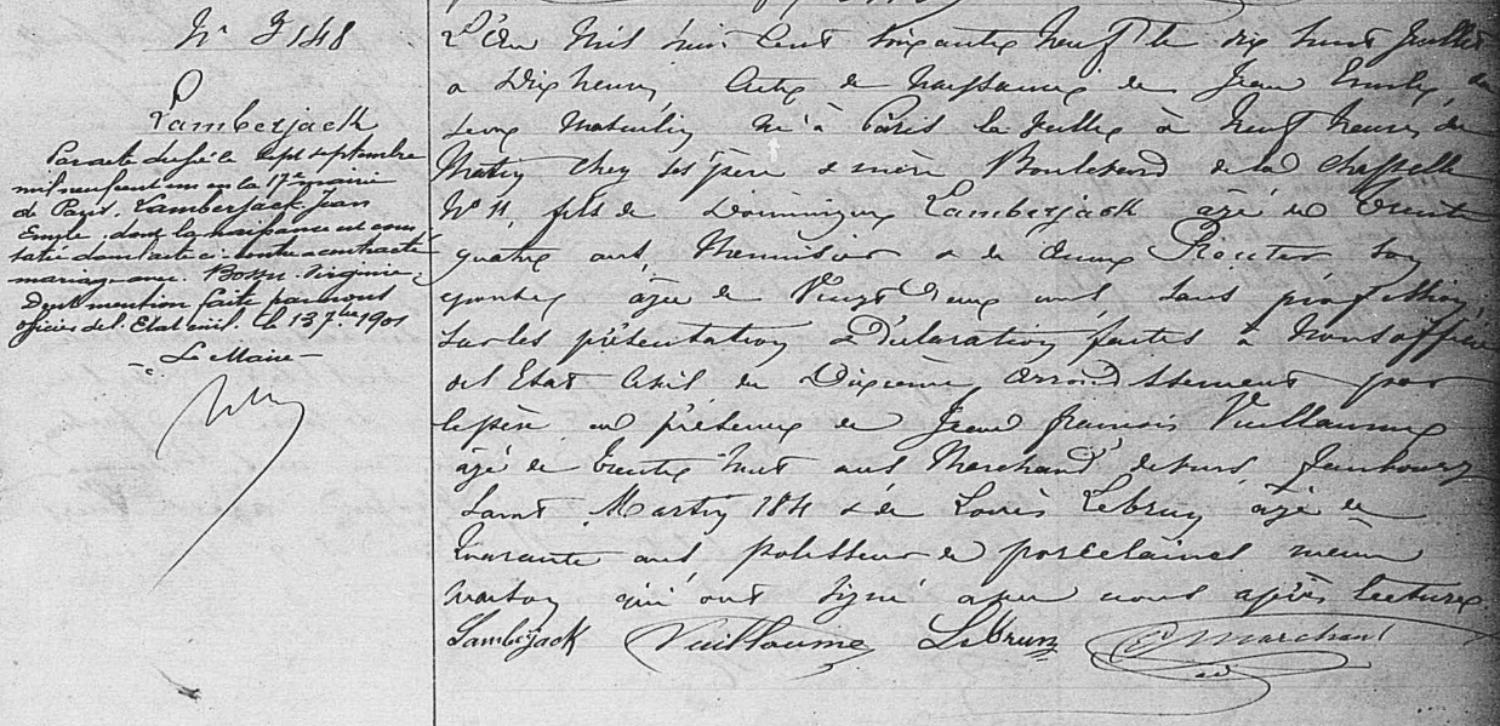 N° 3148
Lamberjack
Par acte dressé le sept septembre
mil neuf cent un en la 17e mairie
de Paris, Lamberjack Jean
Emile dont la naissance est cons
tatée dans l'acte ci-contre a contracté
mariage avec Bossu Virginie
Dont mention faite par nous
officier de l'Etat civil. le 13 7bre 1901
Le Maire
L'an mil huit cent soixante neuf le dix huit Juillet
a dix heures, Acte de naissance de Jean Emile, du
sexe masculin né à Paris la veille à neuf heures du
matin chez ses père & mère Boulevard de la Chapelle
N° 11, fils de Dominique Lamberjack agé de trente
quatre ans, Menuisier & de son
epouse agée de vingt deux ans, sans profession
Sur les présentation & déclaration faites à Nous officier
de l'Etat Civil du Dixième arrondissement par
le père en présence de Jean François Vuillaume
âgé de trente huit ans Marchand de vins, faubourg
Saint Martin 184 & de Louis Lebrun agé de
quarante ans, polisseur de porcelaines même
maison qui ont signé avec nous après lecture
Lamberjack Vuillaume Lebrun Marchant